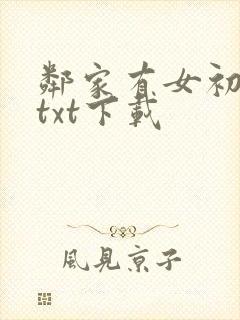 鄰家有女初
txt下載
風見京子